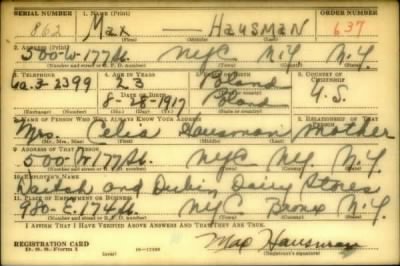 SERIAL NUMBER 1. NAME (Print) ORDER NUMBER
862 Max — Hausman 637
2. ADDRESS (Print)
500-W-177 St. NYC N.Y. N.Y.
3. TELEPHONE 4. AGE IN YEARS 5. PLACE OF BIRTH 6. COUNTRY OF CITIZENSHIP
Wa.3-2399 23 Poland
DATE OF BIRTH
8-28-1917 Poland U.S.
(Exchange) (Number) (Mo.) (Day) (Yr.) (State or country)
7. NAME OF PERSON WHO WILL ALWAYS KNOW YOUR ADDRESS 8. RELATIONSHIP OF THAT PERSON
Mrs. Celia Hausman Mother
(Mr., Mrs., Miss) (First) (Middle) (Last)
9. ADDRESS OF THAT PERSON
500-W-177 St. NYC NY. N.Y.
(Number and street or R. F. D. number) (Town) (County) (State)
10. EMPLOYER'S NAME
Daitch and Dubin Dairy Stores
11. PLACE OF EMPLOYMENT OR BUSINESS
980-E.174 St. NYC Bronx N.Y.
(Number and street or R. F. D. number) (Town) (County) (State)
I AFFIRM THAT I HAVE VERIFIED ABOVE ANSWERS AND THAT THEY ARE TRUE.
REGISTRATION CARD
D. S. S. Form 1 (over) 16-17105 Max Hausman